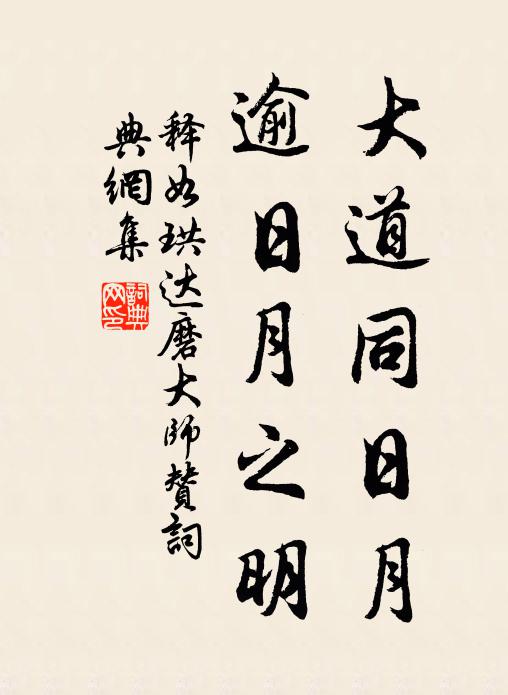 大道同日月
逾日月之明
释如珙达磨大师赞詞
典網集
詞典网印